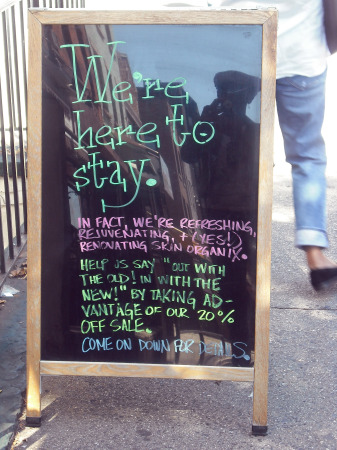 We're
here to
stay.
IN FACT, WE'RE REFRESHING,
REJUVENATING, + (YES!)
RENOVATING SKIN ORGANIX.
HELP US SAY "OUT WITH
THE OLD! IN WITH THE
NEW!" BY TAKING AD-
VANTAGE OF OUR 20%
OFF SALE.
COME ON DOWN FOR DETAILS.